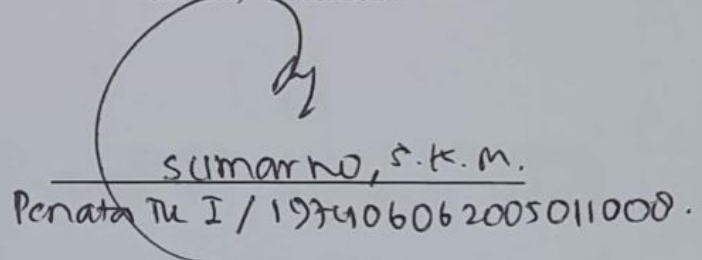 Sumarno, S.K.M.
Penata TK I / 197406062005011008.